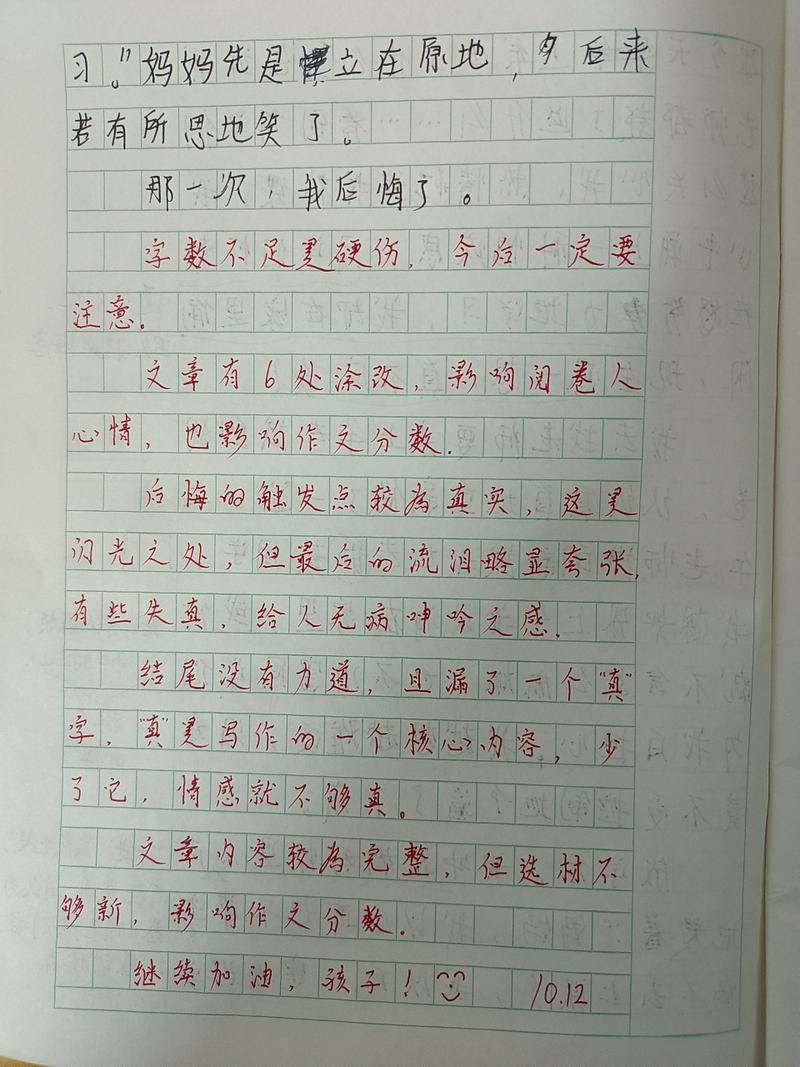 习。"妈妈先是立在原地，后来
若有所思地笑了。
那一次，我后悔了。
字数不足是硬伤，今后一定要
注意.
文章有6处涂改，影响阅卷人
心情，也影响作文分数.
后悔的触发点较为真实，这是
闪光之处，但最后的流泪略显夸张，
有些失真，给人无病呻吟之感.
结尾没有力道，且漏了一个"真"
字，"真"是写作的一个核心内容，少
了它，情感就不够真。
文章内容较为完整，但选材不
够新，影响作文分数.
继续加油，孩子！ 10.12